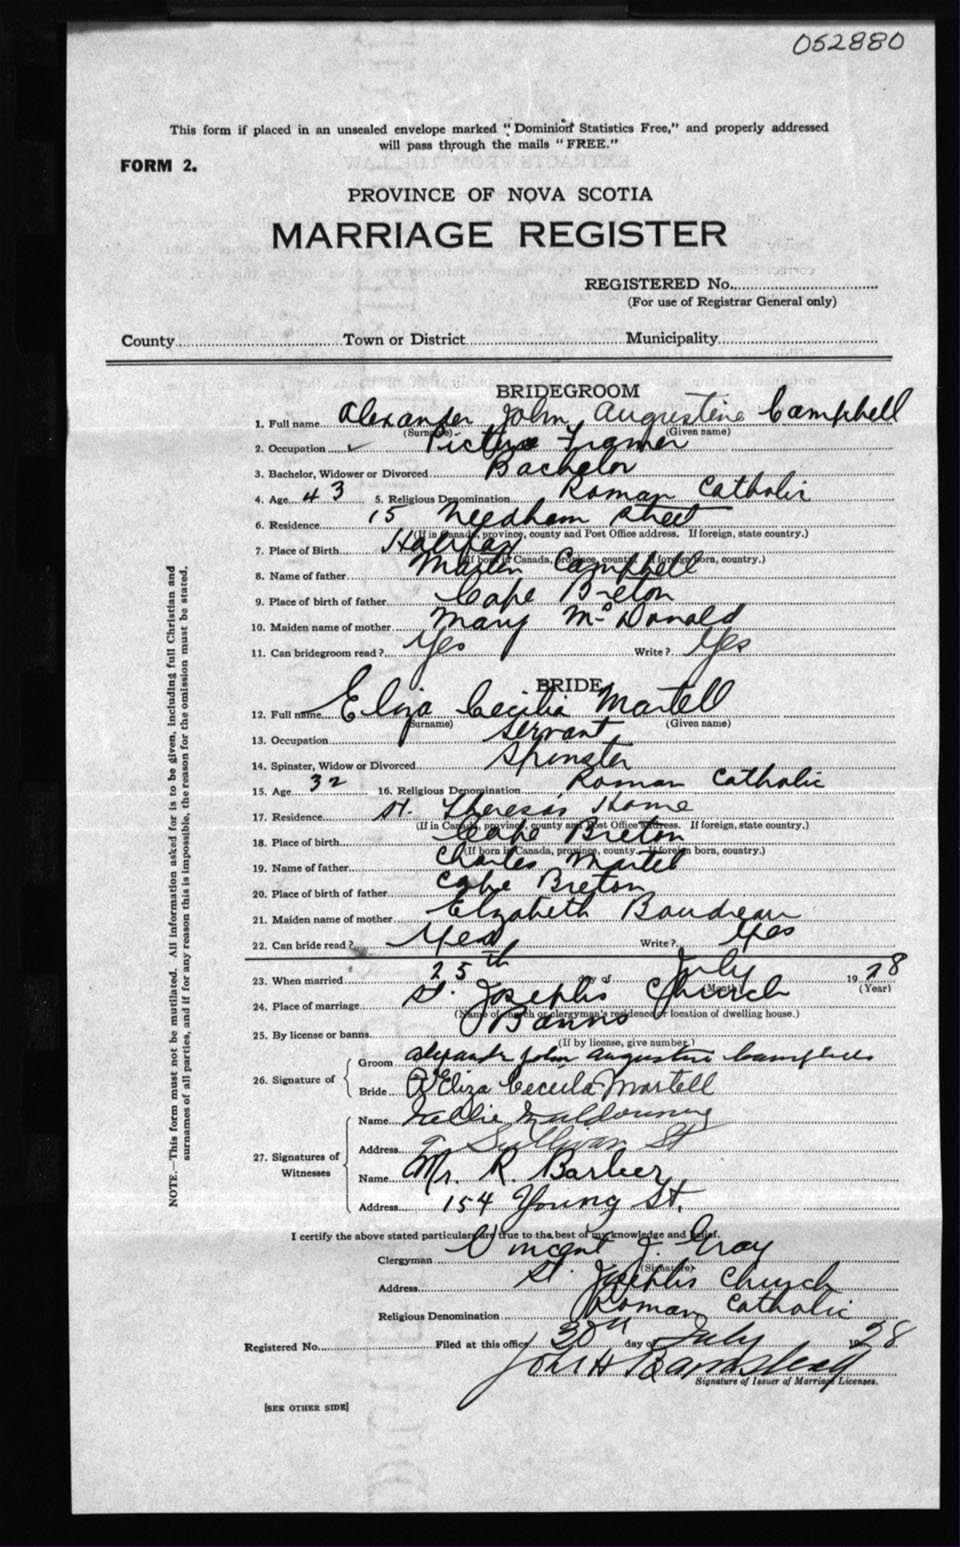 052880
This form if placed in an unsealed envelope marked "Dominion Statistics Free," and properly addressed
will pass through the mails "FREE."
FORM 2.
PROVINCE OF NOVA SCOTIA
MARRIAGE REGISTER
REGISTERED No.
(For use of Registrar General only)
County Town or District Municipality
BRIDEGROOM
1. Full name Alexander John Augustine Campbell
(Surname) (Given name)
2. Occupation Picture Framer
3. Bachelor, Widower or Divorced Bachelor
4. Age 43 5. Religious Denomination Roman Catholic
6. Residence 15 Needham Street
(If in Canada, province, county and Post Office address. If foreign, state country.)
7. Place of Birth Halifax
(If born in Canada, province, county. If foreign born, country.)
8. Name of father Martin Campbell
9. Place of birth of father Cape Breton
10. Maiden name of mother Mary McDonald
11. Can bridegroom read? Yes Write? Yes
BRIDE
12. Full name Eliza Cecilia Martell
(Surname) (Given name)
13. Occupation Servant
14. Spinster, Widow or Divorced Spinster
15. Age 32 16. Religious Denomination Roman Catholic
17. Residence St. Theresa's Home
(If in Canada, province, county and Post Office address. If foreign, state country.)
18. Place of birth Cape Breton
(If born in Canada, province, county. If foreign born, country.)
19. Name of father Charles Martel
20. Place of birth of father Cape Breton
21. Maiden name of mother Elzabeth Boudreau
22. Can bride read? Yes Write? Yes
23. When married 25th day of July 1928
(Month) (Year)
24. Place of marriage St. Joseph's Church
(Name of church or clergyman's residence or location of dwelling house.)
25. By license or banns Banns
(If by license, give number.)
26. Signature of
Groom Alexander John Augustine Campbell
Bride Eliza Cecelia Martell
27. Signatures of Witnesses
Name Nellie
Address Sullivan St
Name Mr. R. Barber
Address 154 Young St.
I certify the above stated particulars are true to the best of my knowledge and belief.
Clergyman Vincent J. Gray
(Signature)
Address St. Joseph's Church
Religious Denomination Roman Catholic
Registered No. Filed at this office 30th day of July 1928
John H Barnstead
Signature of Issuer of Marriage Licenses.
[SEE OTHER SIDE]
NOTE.—This form must not be mutilated. All information asked for is to be given, including full Christian and
surnames of all parties, and if for any reason this is impossible, the reason for the omission must be stated.